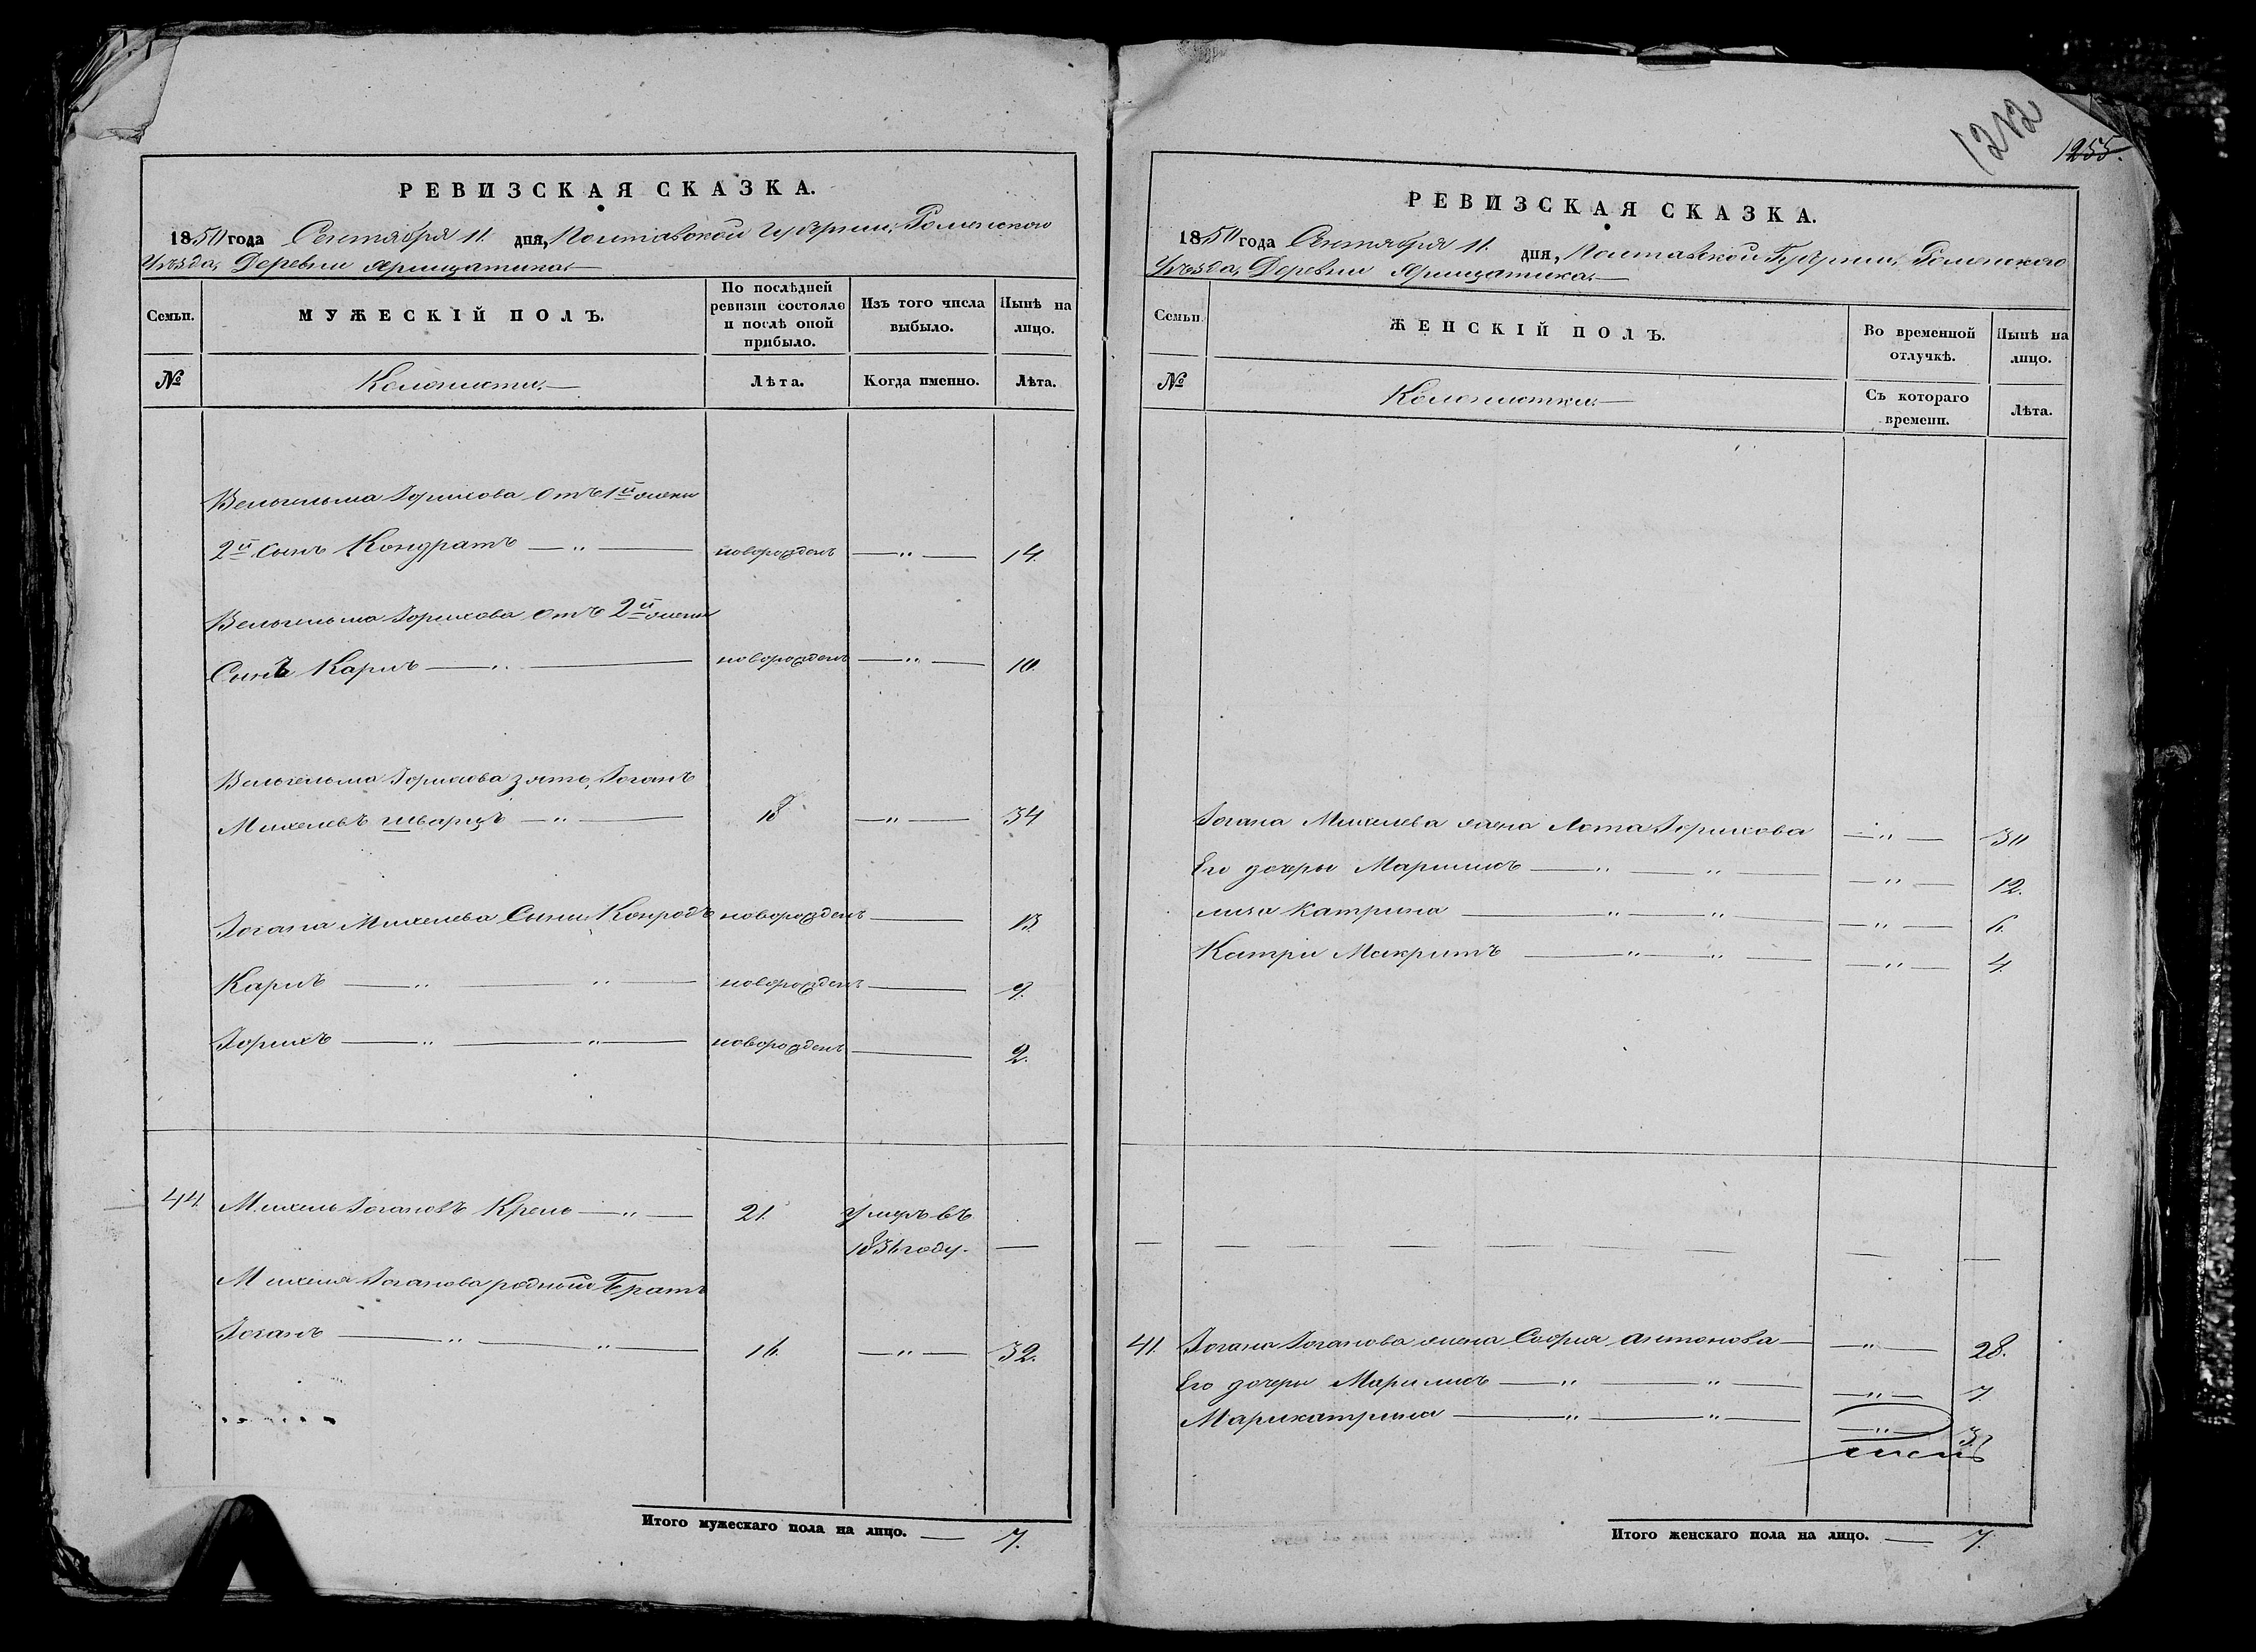 РЕВИЗСКАЯ СКАЗКА.
1850 года Сентября 11. дня, Полтавской Губернии, Роменского
Уѣзда, Деревни
Семьи.
МУЖЕСКІЙ ПОЛЪ.
По послѣдней ревизіи состояло и послѣ оной прибыло.
Изъ того числа выбыло.
Нынѣ на лицо.
№
Колонисты.
Лѣта.
Когда именно.
Лѣта.
Вельгельма Горихова отъ 1й жены
2й Сынъ Кондратъ — „ — новорожденъ — „ — 14.
Вельгельма Горихова отъ 2й жены
Сынъ Карлъ — „ — новорожденъ — „ — 10.
Вельгельма Горихова зять, Іоганъ
Михелевъ Шварцъ — „ — 18 — „ — 34
Іогана Михелева Сыны, Конродъ новорожденъ — 13.
Карлъ — „ — „ — новорожденъ — 9.
Горихъ — „ — „ — новорожденъ — 2.
44. Михель Іогановъ — „ — 21. умеръ въ
году. —
Михеля Іоганова родный Братъ
Іоганъ — „ — „ — 16. — „ — 32.
Итого мужескаго пола на лицо. — 7.
1212
1255.
РЕВИЗСКАЯ СКАЗКА.
1850 года Сентября 11. дня, Полтавской Губернии, Роменского
Уѣзда, Деревни
Семьи.
ЖЕНСКІЙ ПОЛЪ.
Во временной отлучкѣ.
Нынѣ на лицо.
№
Колонистки.
Съ котораго времени.
Лѣта.
Іогана Михелева жена Лота Горихова — „ — 30
Его дочери Марилисъ — „ — „ — — „ — 12.
лиза Катрина — „ — „ — — „ — 6.
Катри Макритъ — „ — „ — — „ — 4.
— — — — — — — —
41. Іогана Іоганова жена София антонова — „ — 28.
Его дочери Марилисъ — „ — „ — — „ — 7.
Марикатрина — „ — „ — — „ — 3.
Итого женскаго пола на лицо. — 7.